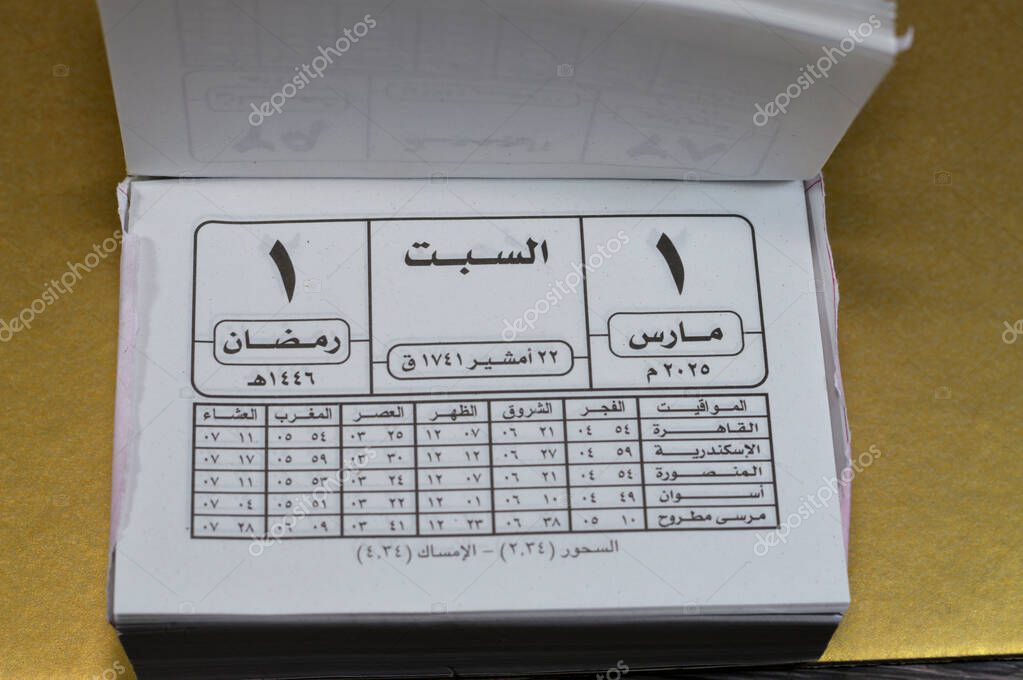 السبت
١
مارس
٢٠٢٥ م
٢٢ أمشير ١٧٤١ ق
١
رمضان
١٤٤٦هـ
المواقيت الفجر الشروق الظهر العصر المغرب العشاء
القاهرة ٥٤ ٠٤ ٢١ ٠٦ ٠٧ ١٢ ٢٥ ٠٣ ٥٤ ٠٥ ١١ ٠٧
الإسكندرية ٥٩ ٠٤ ٢٧ ٠٦ ١٢ ١٢ ٣٠ ٠٣ ٥٩ ٠٥ ١٧ ٠٧
المنصورة ٥٤ ٠٤ ٢١ ٠٦ ٠٧ ١٢ ٢٤ ٠٣ ٥٣ ٠٥ ١١ ٠٧
أسوان ٤٩ ٠٤ ١٠ ٠٦ ٠١ ١٢ ٢٢ ٠٣ ٥١ ٠٥ ٠٤ ٠٧
مرسى مطروح ١٠ ٠٥ ٣٨ ٠٦ ٢٣ ١٢ ٤١ ٠٣ ٠٩ ٠٦ ٢٨ ٠٧
السحور (٢,٣٤) – الإمساك (٤,٣٤)
depositphotos
depositphotos
depositphotos
depositphotos
depositphotos
depositphotos
depositphotos